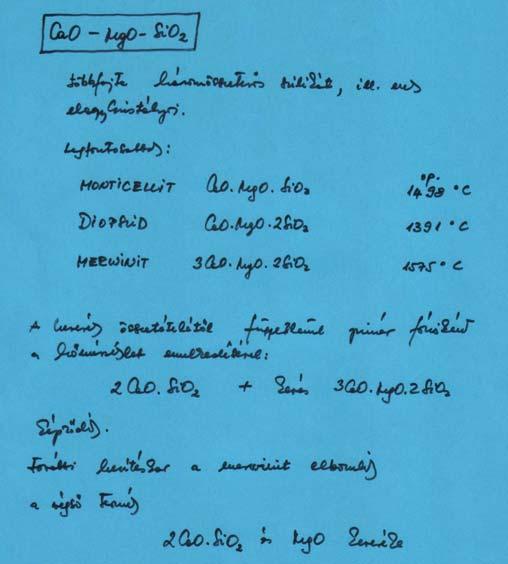 CaO – MgO – SiO₂
többfajta háromösszetevős szilikát, ill. ezek
elegykristályai.
Legfontosabbak:
op.
MONTICELLIT CaO.MgO.SiO₂ 1498 °C
DIOPSZID CaO.MgO.2SiO₂ 1391 °C
MERWINIT 3CaO.MgO.2SiO₂ 1575 °C
A keverék összetételétől függetlenül primér
a hőmérséklet emelkedésével:
2CaO.SiO₂ + kevés 3CaO.MgO.2SiO₂
képződik.
További hevítéskor a merwinit elbomlik
a végső termék
2CaO.SiO₂ és MgO keveréke